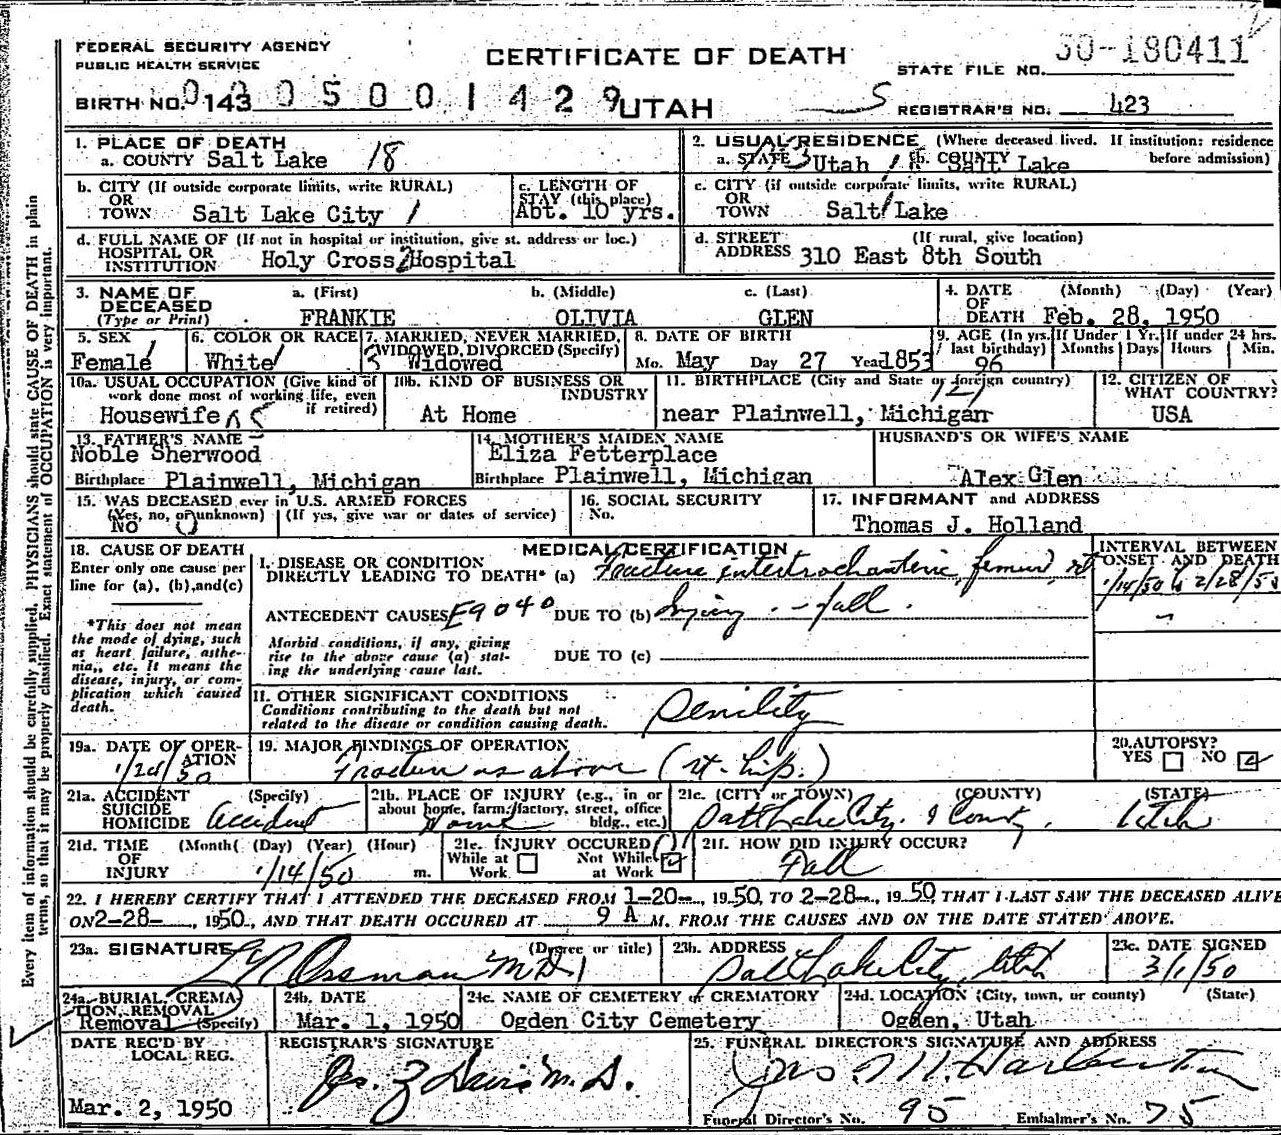 FEDERAL SECURITY AGENCY
PUBLIC HEALTH SERVICE
CERTIFICATE OF DEATH
50-180411
STATE FILE NO.
BIRTH NO. 143 0 0 5 0 0 1 4 2 9 UTAH
S
REGISTRAR'S NO. 423
1. PLACE OF DEATH
a. COUNTY Salt Lake 18
2. USUAL RESIDENCE (Where deceased lived. If institution: residence before admission)
a. STATE Utah b. COUNTY Salt Lake
b. CITY (If outside corporate limits, write RURAL)
OR
TOWN Salt Lake City 1
c. LENGTH OF
STAY (this place)
Abt. 10 yrs.
c. CITY (if outside corporate limits, write RURAL)
OR
TOWN Salt Lake
d. FULL NAME OF (If not in hospital or institution, give st. address or loc.)
HOSPITAL OR
INSTITUTION Holy Cross Hospital
d. STREET (If rural, give location)
ADDRESS 310 East 8th South
3. NAME OF DECEASED
(Type or Print)
a. (First) b. (Middle) c. (Last)
FRANKIE OLIVIA GLEN
4. DATE OF DEATH (Month) (Day) (Year)
Feb. 28, 1950
5. SEX
Female
6. COLOR OR RACE
White
7. MARRIED, NEVER MARRIED,
WIDOWED, DIVORCED (Specify)
Widowed
8. DATE OF BIRTH
Mo. May Day 27 Year 1853
9. AGE (In yrs. last birthday)
96
If Under 1 Yr. Months Days
If under 24 hrs. Hours Min.
10a. USUAL OCCUPATION (Give kind of work done most of working life, even if retired)
Housewife
10b. KIND OF BUSINESS OR INDUSTRY
At Home
11. BIRTHPLACE (City and State or foreign country)
near Plainwell, Michigan
12. CITIZEN OF WHAT COUNTRY?
USA
13. FATHER'S NAME
Noble Sherwood
Birthplace Plainwell, Michigan
14. MOTHER'S MAIDEN NAME
Eliza Fetterplace
Birthplace Plainwell, Michigan
HUSBAND'S OR WIFE'S NAME
Alex Glen
15. WAS DECEASED ever in U.S. ARMED FORCES
(Yes, no, or unknown) (If yes, give war or dates of service)
No
16. SOCIAL SECURITY
No.
17. INFORMANT and ADDRESS
Thomas J. Holland
18. CAUSE OF DEATH
Enter only one cause per
line for (a), (b), and (c)
*This does not mean
the mode of dying, such
as heart failure, asthe-
nia, etc. It means the
disease, injury, or com-
plication which caused
death.
MEDICAL CERTIFICATION
I. DISEASE OR CONDITION
DIRECTLY LEADING TO DEATH* (a) Fracture intertrochanteric, femur, rt
INTERVAL BETWEEN
ONSET AND DEATH
1/14/50 to 2/28/50
ANTECEDENT CAUSES E9040 DUE TO (b) Injury - fall.
Morbid conditions, if any, giving
rise to the above cause (a) stat-
ing the underlying cause last.
DUE TO (c)
II. OTHER SIGNIFICANT CONDITIONS
Conditions contributing to the death but not
related to the disease or condition causing death.
Senility
19a. DATE OF OPER-
ATION
19. MAJOR FINDINGS OF OPERATION
Fracture as above (rt. hip.)
20. AUTOPSY?
YES NO
21a. ACCIDENT (Specify)
SUICIDE
HOMICIDE Accident
21b. PLACE OF INJURY (e.g., in or
about home, farm, factory, street, office
bldg., etc.)
Home
21c. (CITY or TOWN) (COUNTY) (STATE)
Salt Lake City. County. Utah
21d. TIME (Month) (Day) (Year) (Hour)
OF
INJURY 1/14/50 m.
21e. INJURY OCCURED
While at Work Not While at Work
21f. HOW DID INJURY OCCUR?
Fall
22. I HEREBY CERTIFY THAT I ATTENDED THE DECEASED FROM 1-20-, 1950, TO 2-28-, 1950 THAT I LAST SAW THE DECEASED ALIVE
ON 2-28-, 1950, AND THAT DEATH OCCURED AT 9 A M. FROM THE CAUSES AND ON THE DATE STATED ABOVE.
23a. SIGNATURE (Degree or title)
Ossman M.D.
23b. ADDRESS
Salt Lake City, Utah
23c. DATE SIGNED
3/1/50
24a. BURIAL, CREMA-
TION, REMOVAL
Removal (Specify)
24b. DATE
Mar. 1, 1950
24c. NAME OF CEMETERY or CREMATORY
Ogden City Cemetery
24d. LOCATION (City, town, or county) (State)
Ogden, Utah
DATE REC'D BY
LOCAL REG.
Mar. 2, 1950
REGISTRAR'S SIGNATURE
25. FUNERAL DIRECTOR'S SIGNATURE AND ADDRESS
Funeral Director's No. 95 Embalmer's No. 75
Every item of information should be carefully supplied. PHYSICIANS should state CAUSE OF DEATH in plain
terms, so that it may be properly classified. Exact statement of OCCUPATION is very important.